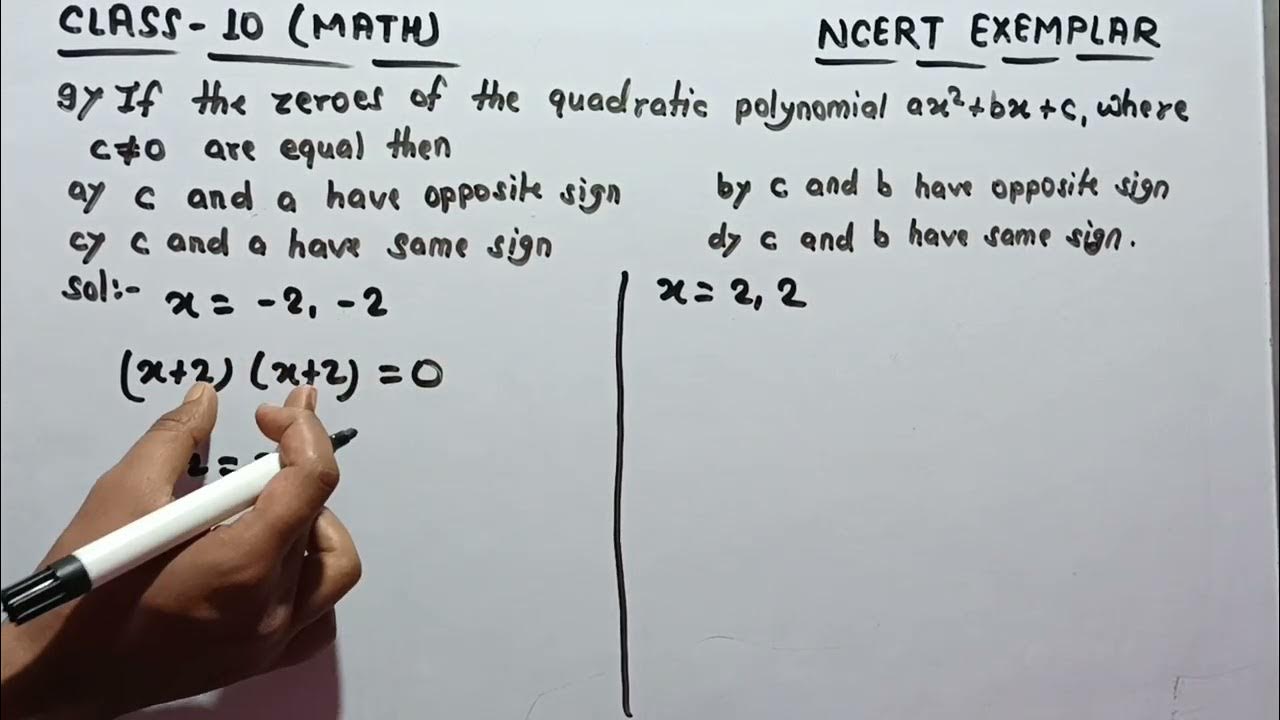 CLASS - 10 (MATH)
NCERT EXEMPLAR
9) If the zeroes of the quadratic polynomial ax²+bx+c, where
c≠0 are equal then
a) c and a have opposite sign
b) c and b have opposite sign
c) c and a have same sign
d) c and b have same sign.
Sol:- x = -2, -2
(x+2) (x+2) = 0
x = 2, 2